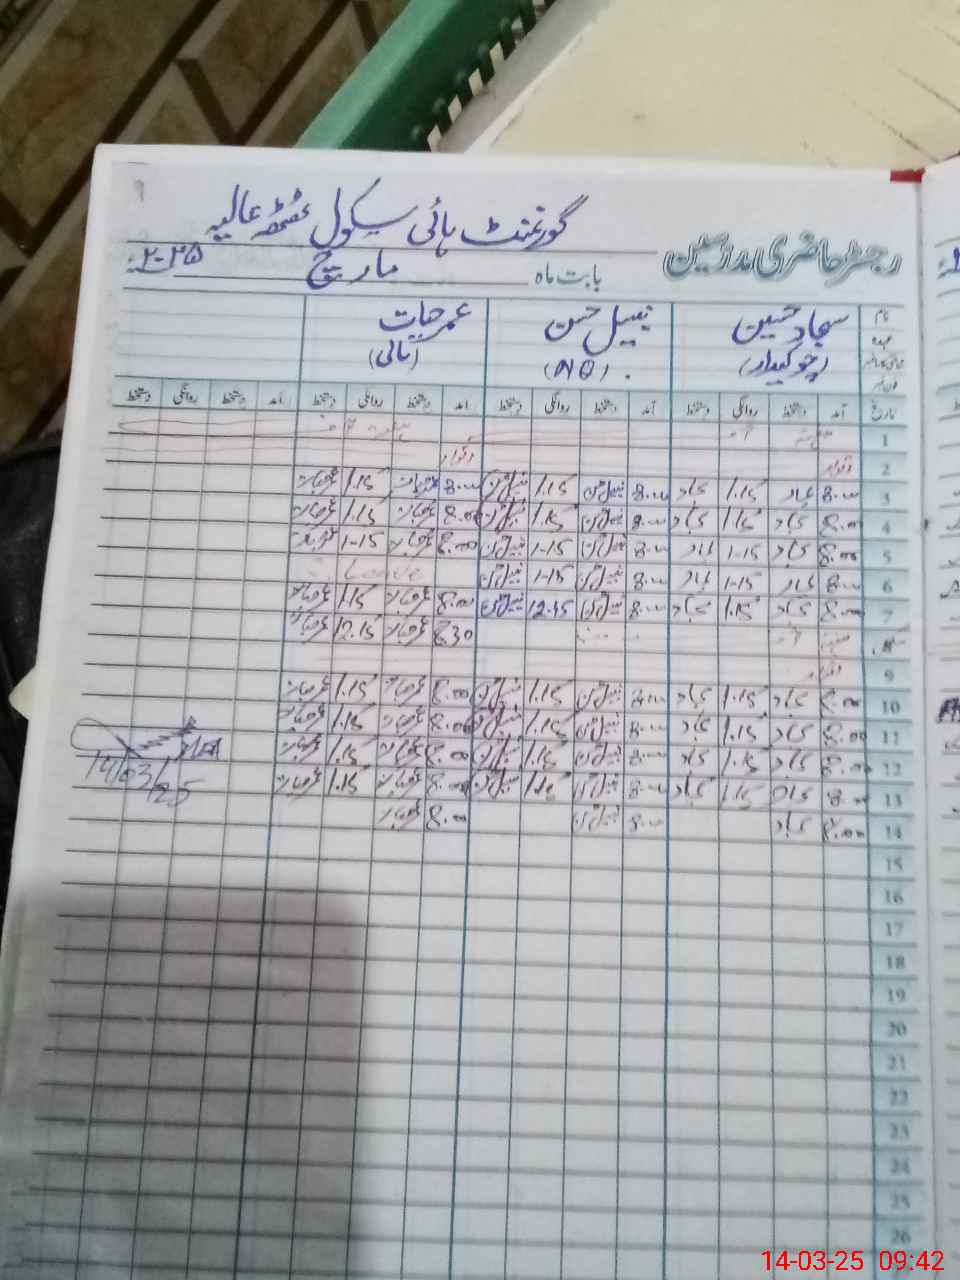 گورنمنٹ ہائی سکول ٹھٹھہ عالیہ
رجسٹر حاضری مدرسین بابت ماہ مارچ ۲۰۲۵ء
نام سجاد حسین نبیل حسن عمر حیات
عہدہ (چوکیدار) (NQ) (مالی)
تاریخ آمد دستخط روانگی دستخط آمد دستخط روانگی دستخط آمد دستخط روانگی دستخط آمد دستخط روانگی دستخط
1
2 اتوار اتوار
3 8:00 سجاد 1.15 سجاد 8:00 نبیل حسن 1.15 نبیل حسن 8:00 عمر حیات 1.15 عمر حیات
4 8:00 سجاد 1.15 سجاد 8:00 نبیل حسن 1.15 نبیل حسن 8:00 عمر حیات 1.15 عمر حیات
5 8:00 سجاد 1-15 سجاد 8:00 نبیل حسن 1-15 نبیل حسن 8:00 عمر حیات 1-15 عمر حیات
6 8:00 سجاد 1-15 سجاد 8:00 نبیل حسن 1-15 نبیل حسن Leave
7 8:00 سجاد 1.15 سجاد 8:00 نبیل حسن 12.45 نبیل حسن 8:00 عمر حیات 1.15 عمر حیات
8:30 عمر حیات 12.15 عمر حیات
9
10 8:00 سجاد 1.15 سجاد 8:00 نبیل حسن 1.15 نبیل حسن 8:00 عمر حیات 1.15 عمر حیات
11 8:00 سجاد 1.15 سجاد 8:00 نبیل حسن 1.15 نبیل حسن 8:00 عمر حیات 1.15 عمر حیات
12 8:00 سجاد 1.15 سجاد 8:00 نبیل حسن 1.15 نبیل حسن 8:00 عمر حیات 1.15 عمر حیات
13 8:00 سجاد 1.15 سجاد 8:00 نبیل حسن 1.15 نبیل حسن 8:00 عمر حیات 1.15 عمر حیات
14 8:00 سجاد 8:00 نبیل حسن 8:00 عمر حیات
14/03/25
15
16
17
18
19
20
21
22
23
24
25
26
14-03-25 09:42